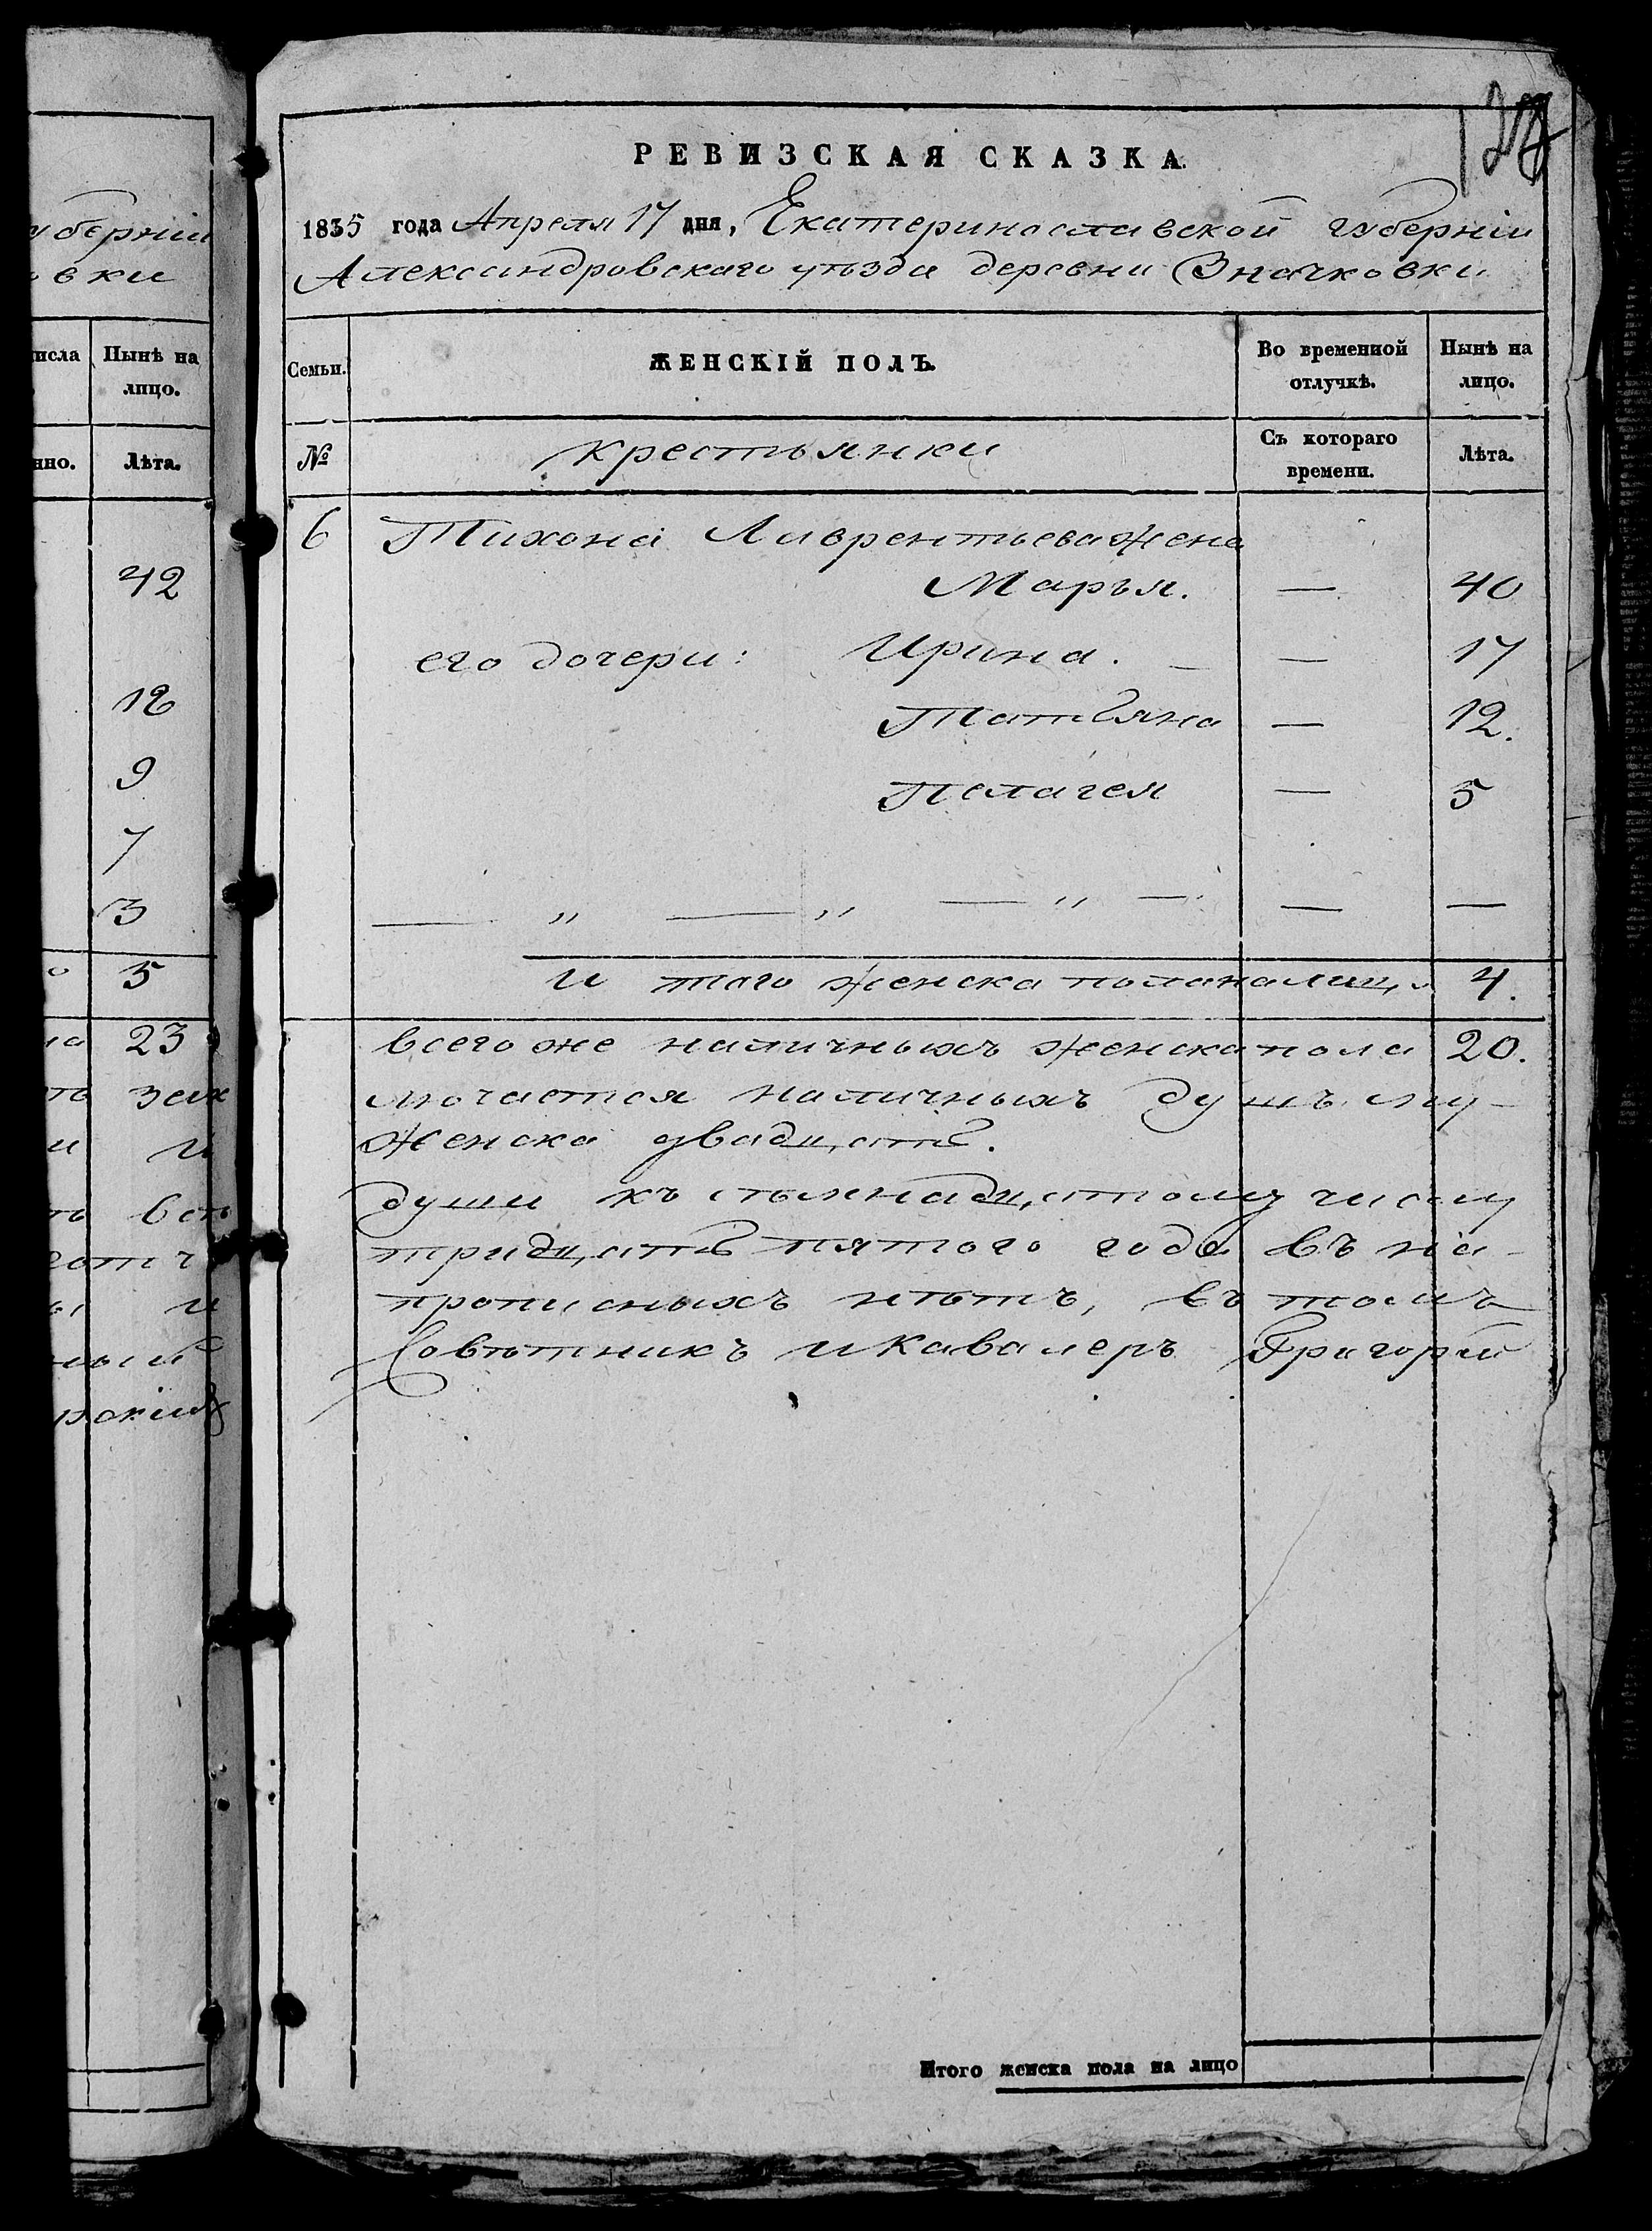 губерніи
овки
числа Нынѣ на
лицо.
нно. Лѣта.
42
9
7
3
5
23
и и
РЕВИЗСКАЯ СКАЗКА
1835 года Апреля 17 дня, Екатеринославской губерніи
Александровскаго уѣзда деревни Значковки
Семьи. ЖЕНСКІЙ ПОЛЪ. Во временной Нынѣ на
отлучкѣ. лицо.
№ крестьянки Съ котораго Лѣта.
времени.
6 Тихона Лаврентьева жена
Марья. — 40
его дочери: Ирина. — — 17
Татьяна — 12.
Пелагея — 5
— „ — „ — „ — — —
и того женска пола налицо 4.
всего же наличныхъ женска пола 20.
лючается наличныхъ душъ му-
женска двадцать.
души къ семнадцатому числу
тридцать пятого года въ на-
прописныхъ нѣтъ, въ томъ
Совѣтникъ и Кавалеръ Григорій
Итого женска пола на лицо